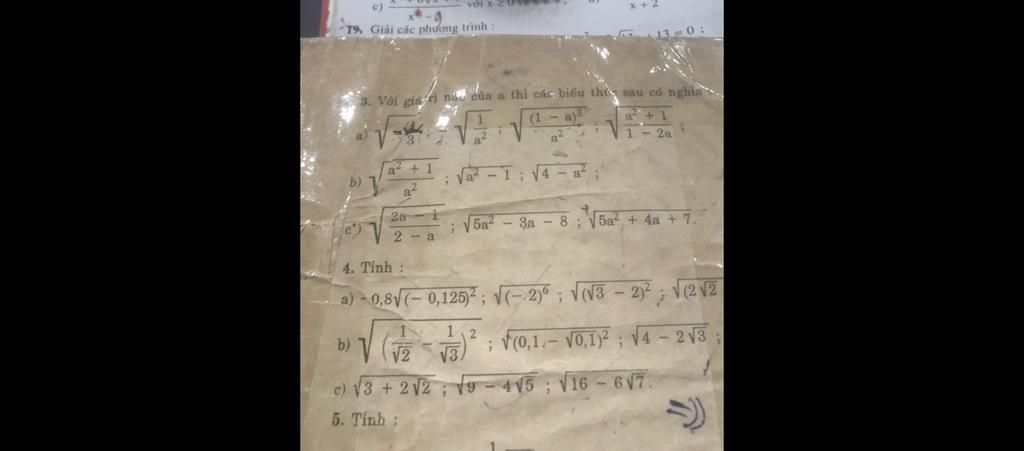 c) x - 9 với x ≥ 0
x + 2
19. Giải các phương trình :
+ 13 = 0 ;
3. Với giá trị nào của a thì các biểu thức sau có nghĩa
a) √ 3 ; √(1/a²) ; √((1 - a)³/a²) ; √((a² + 1)/(1 - 2a)) ;
b) √((a² + 1)/a²) ; √(a² - 1) ; √(4 - a²) ;
c*) √((2a - 1)/(2 - a)) ; √(5a² - 3a - 8) ; √(5a² + 4a + 7).
4. Tính :
a) - 0,8√(- 0,125)² ; √(- 2)⁶ ; √(√3 - 2)² ; √(2√2
b) √(1/√2 - 1/√3)² ; √(0,1 - √0,1)² ; √(4 - 2√3) ;
c) √(3 + 2√2) ; √(9 - 4√5) ; √(16 - 6√7).
5. Tính :
1